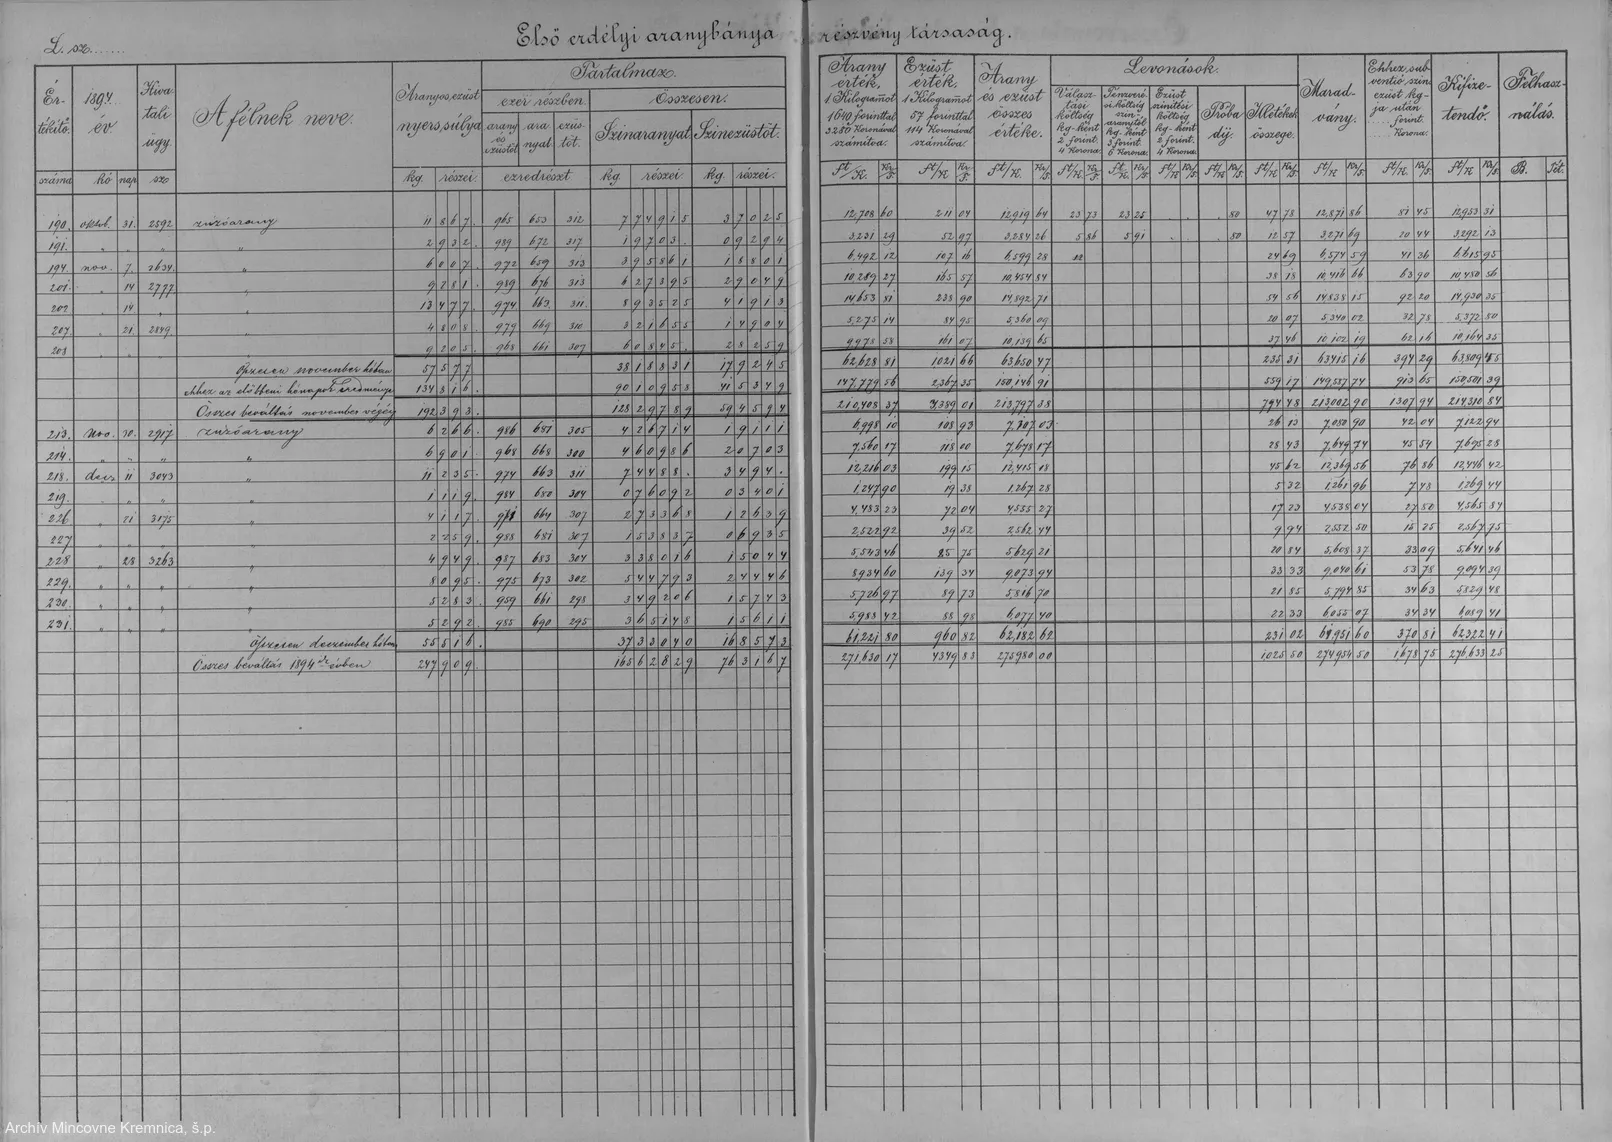 Első erdélyi aranybánya részvény társaság.
L. sz.......
Ér-
tékítő.
száma
1894
év
hó nap
Hiva
tali
ügy.
sz
A félnek neve.
Aranyos, ezüst
nyers, súlya
kg. részei.
Tartalmaz.
ezer részben.
arany
és
ezüstöt
ara
nyat
ezüs-
töt.
ezredrészt
Összesen.
Színaranyat
kg. részei.
Színezüstöt.
kg. részei.
Arany
érték,
1 Kilogramot
1640 forinttal
3280 Koronával
számítva.
Ezüst
érték,
1 Kilogramot
57 forinttal
114 Koronával
számítva.
Arany
és ezüst
összes
értéke.
Levonások.
Válasz-
tási
költség
kg-ként
2 forint
4 Korona.
Próba
díj.
Illetékek
összege.
Marad-
vány.
Kifize-
tendő.
Felhasz-
nálás.
190. oktob. 31. 2592 zuzóarany 11 867. 965 653 312 7 74915 3 7025 12,708 60 211 04 12,919 64 23 73 23 25 . . 80 47 78 12,871 86 81 45 12,953 31
191. " " " " 2 932. 989 672 317 1 9703. 0 9294 3,231 29 52 97 3,284 26 5 86 5 91 . . 80 12 57 3,271 69 20 44 3,292 13
194. nov. 7. 2634. " 6 007. 972 659 313 3 95861 1 8801 6,492 12 107 16 6,599 28 24 69 6,574 59 41 36 6,615 95
201. " 14 2777 " 9 281. 989 676 313 6 27395 2 9049 10,289 27 165 57 10,454 84 38 18 10,416 66 63 90 10,480 56
202 " 14 " 13 477. 974 663 311. 8 93525 4 1913 14,653 81 238 90 14,892 71 54 56 14,838 15 92 20 14,930 35
207. " 21 2849. " 4 808. 979 669 310 3 21655 1 4904 5,275 14 84 95 5,360 09 20 07 5,340 02 32 78 5,372 80
208 " " " 9 205. 968 661 307 6 0845. 2 8259 9,978 58 161 07 10,139 65 37 46 10,102 19 62 16 10,164 35
Öszesen november hóban 57 577 38 18831 17 9245 62,628 81 1021 66 63,650 47 235 31 63,415 16 394 29 63,809 45
ehhez az előbbeni hónapok eredménye 134 816. 90 10958 41 5349 147,779 56 2,367 35 150,146 91 559 17 149,587 74 913 65 150,501 39
Összes beváltás november végéig 192 393. 128 29789 59 4594 210,408 37 3,389 01 213,797 38 794 48 213,002 90 1307 94 214,310 84
213. nov. 30. 2917. zuzóarany 6 266. 986 681 305 4 26714 1 9111 6,998 10 108 93 7,107 03 26 13 7,080 90 42 04 7,122 94
214. " " " " 6 901. 968 668 300 4 60986 2 0703 7,560 17 118 00 7,678 17 28 43 7,649 74 45 54 7,695 28
218. decz 11 3043 " 11 235. 974 663 311 7 4488. 3 494. 12,216 03 199 15 12,415 18 45 62 12,369 56 76 86 12,446 42
219. " " " " 1 119. 984 680 304 0 76092 0 3401 1,247 90 19 38 1,267 28 5 32 1,261 96 7 48 1,269 44
226 " 21 3175 " 4 117. 971 664 307 2 73368 1 2639 4,483 23 72 04 4,555 27 17 23 4,538 04 27 80 4,565 84
227 " " " " 2 259. 988 681 307 1 53837 0 6935 2,522 92 39 52 2,562 44 9 94 2,552 50 15 25 2,567 75
228 " 28 3263 " 4 949. 987 683 304 3 38016 1 5044 5,543 46 85 75 5,629 21 20 84 5,608 37 33 09 5,641 46
229. " " " " 8 095. 975 673 302 5 44793 2 4446 8,934 60 139 34 9,073 94 33 33 9,040 61 53 78 9,094 39
230. " " " " 5 283. 959 661 298 3 49206 1 5743 5,726 97 89 73 5,816 70 21 85 5,794 85 34 63 5,829 48
231. " " " " 5 292. 985 690 295 3 65148 1 5611 5,988 42 88 98 6,077 40 22 33 6,055 07 34 34 6,089 41
Öszesen deczember hóban 55 516. 37 33040 16 8573 61,221 80 960 82 62,182 62 231 02 61,951 60 370 81 62,322 41
Összes beváltás 1894ik évben 247 909. 165 62829 76 3167 271,630 17 4349 83 275,980 00 1025 50 274,954 50 1678 75 276,633 25
Archív Mincovne Kremnica, š.p.